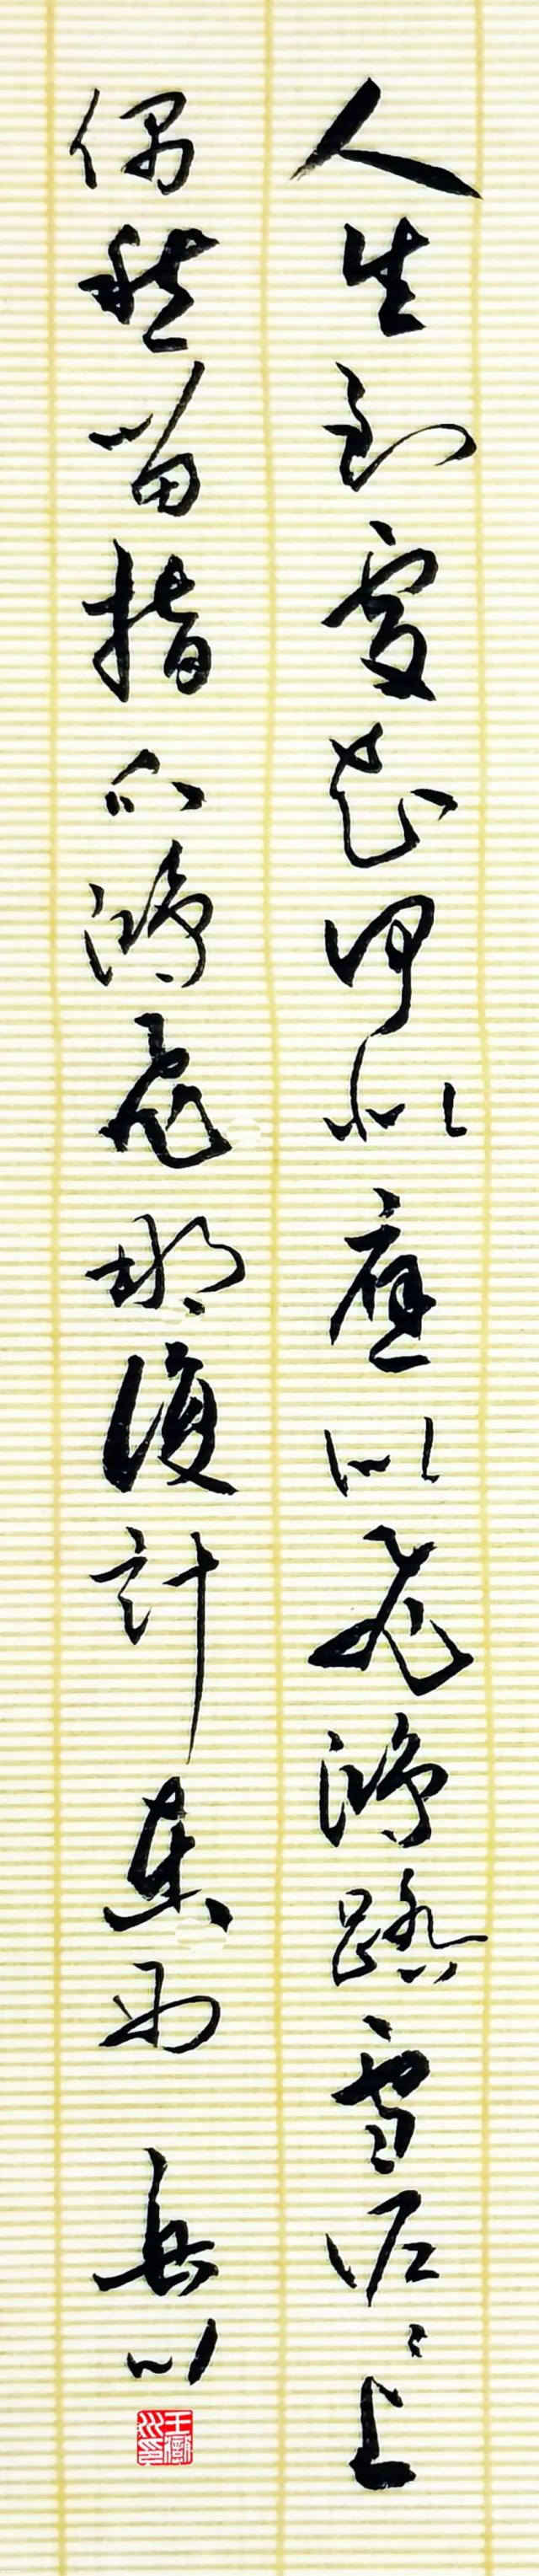 人生到處知何似應似飛鴻踏雪泥〻上
偶然留指爪鴻飛那復計東西